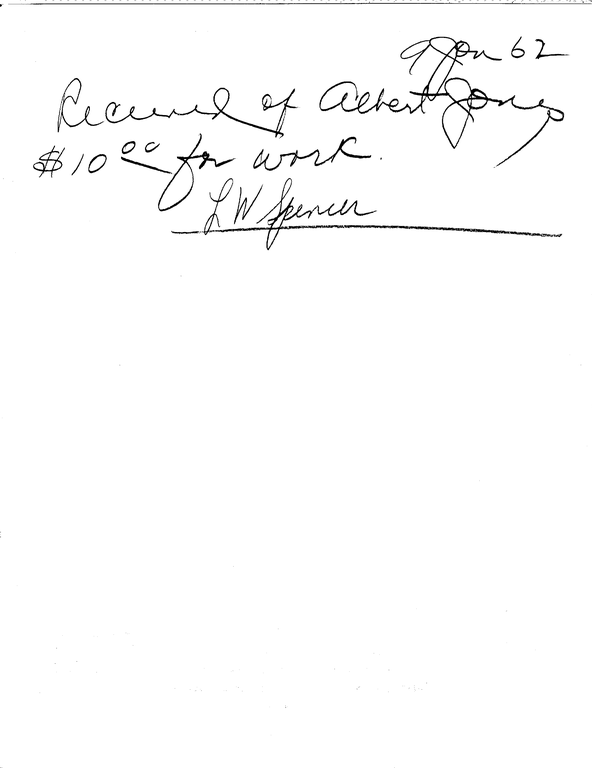 9 Jan 62
Received of Albert Jones
$10.00 for work.
L W Spencer